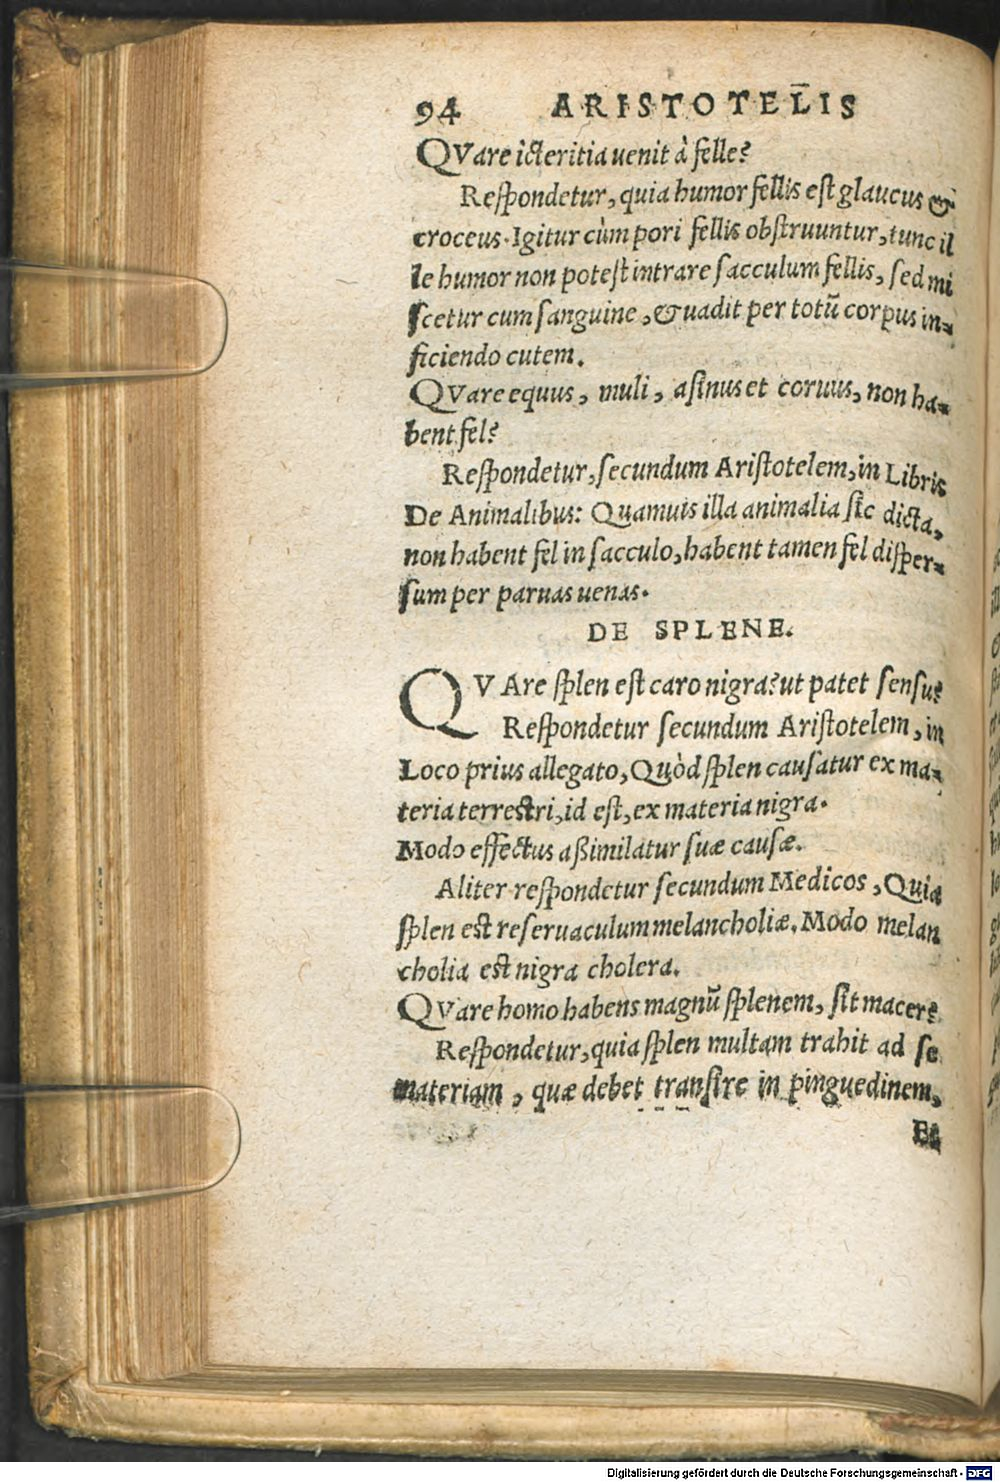 94 ARISTOTELIS
QVare icteritia uenit à felle?
Reſpondetur, quia humor fellis eſt glaucus &
croceus. Igitur cùm pori fellis obſtruuntur, tunc il
le humor non poteſt intrare ſacculum fellis, ſed mi
ſcetur cum ſanguine, & uadit per totū corpus in-
ficiendo cutem.
QVare equus, muli, aſinus et coruus, non ha-
bent fel?
Reſpondetur, ſecundum Ariſtotelem, in Libris
De Animalibus: Quamuis illa animalia ſic dicta,
non habent fel in ſacculo, habent tamen fel diſper-
ſum per paruas uenas.
DE SPLENE.
QVAre ſplen eſt caro nigra? ut patet ſenſu?
Reſpondetur ſecundum Ariſtotelem, in
Loco prius allegato, Quòd ſplen cauſatur ex ma-
teria terreſtri, id eſt, ex materia nigra.
Modo effectus aßimilatur ſuæ cauſæ.
Aliter reſpondetur ſecundum Medicos, Quia
ſplen eſt reſeruaculum melancholiæ. Modo melan
cholia eſt nigra cholera.
QVare homo habens magnū ſplenem, ſit macer?
Reſpondetur, quia ſplen multam trahit ad ſe
materiam, quæ debet tranſire in pinguedinem,
Et
Digitalisierung gefördert durch die Deutsche Forschungsgemeinschaft - DFG